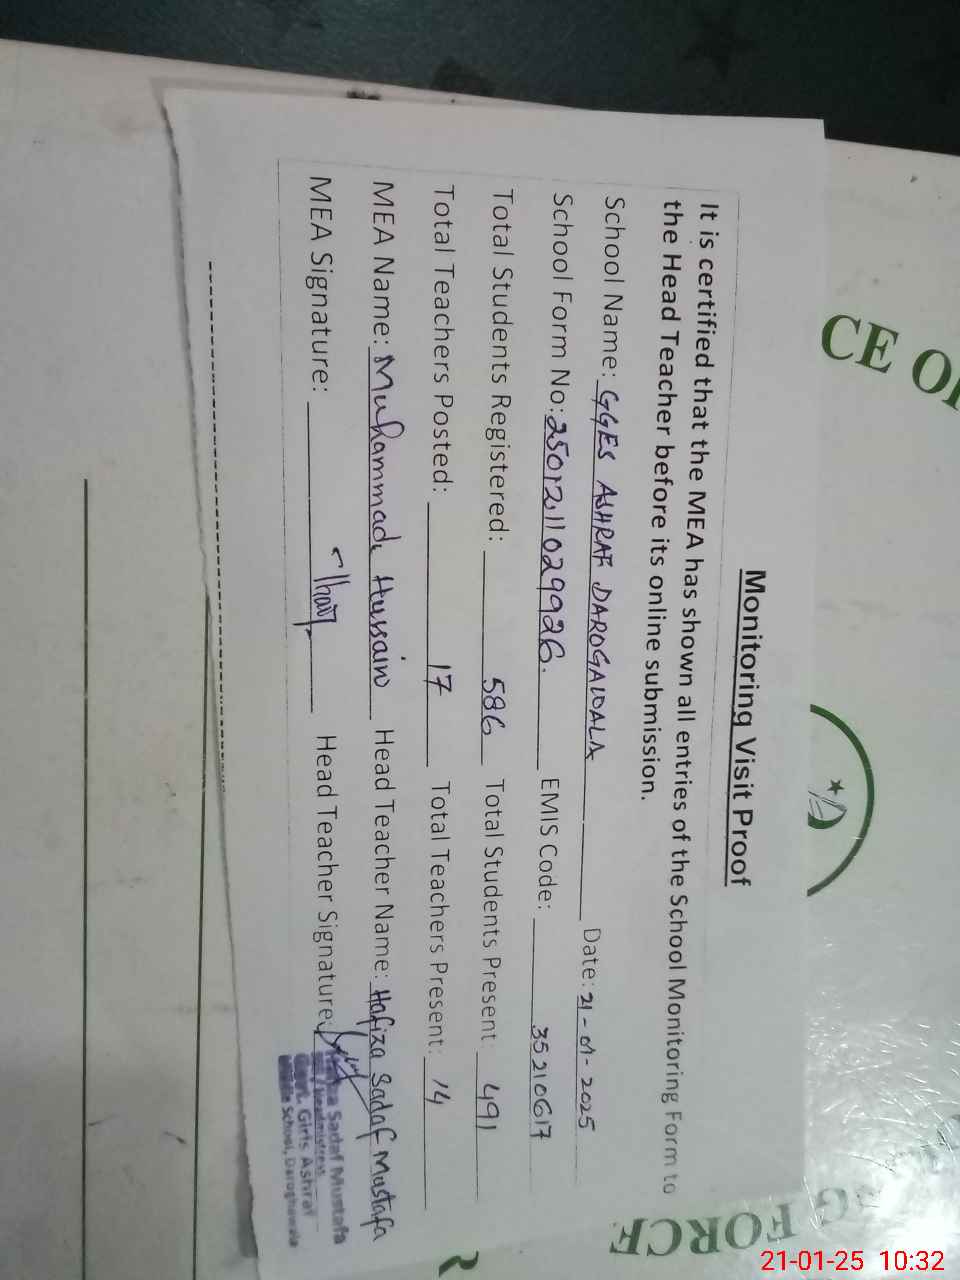 Monitoring Visit Proof
It is certified that the MEA has shown all entries of the School Monitoring Form to
the Head Teacher before its online submission.
School Name: GGES ASHRAF DAROGAWALA Date: 21-01-2025
School Form No: 2501211029926. EMIS Code: 35210617
Total Students Registered: 586 Total Students Present: 491
Total Teachers Posted: 17 Total Teachers Present: 14
MEA Name: Muhammad Hussain Head Teacher Name: Hafiza Sadaf Mustafa
MEA Signature: Head Teacher Signature:
Sadaf Mustafa
Headmistress
Govt. Girls Ashraf
School, Daroghawala
CE OF
G FORCE
21-01-25 10:32